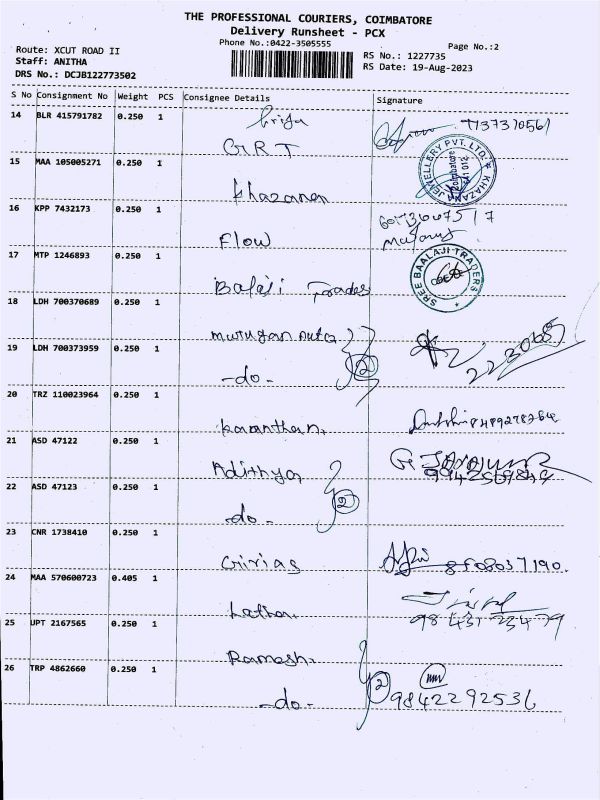 THE PROFESSIONAL COURIERS, COIMBATORE
Delivery Runsheet - PCX
Phone No.:0422-3505555
Page No.:2
Route: XCUT ROAD II
RS No.: 1227735
Staff: ANITHA
RS Date: 19-Aug-2023
DRS No.: DCJB122773502
S No Consignment No Weight PCS Consignee Details Signature
14 BLR 415791782 0.250 1
GRT
15 MAA 105005271 0.250 1
JEWELLERY PVT. LTD. KHAZANA
Coimbatore
641 012
Khazanan
16 KPP 7432173 0.250 1
Flow
17 MTP 1246893 0.250 1
SREE BAALAJI TRADERS
Balaji Trades
18 LDH 700370689 0.250 1
Murugan Auto
19 LDH 700373959 0.250 1
-do- 2
20 TRZ 110023964 0.250 1
Karanthan
21 ASD 47122 0.250 1
Adithya
22 ASD 47123 0.250 1
2
-do-
23 CNR 1738410 0.250 1
Girias
24 MAA 570600723 0.405 1
Lathan
25 UPT 2167565 0.250 1
98 431 23479
Ramesh
26 TRP 4862660 0.250 1
-do- 2 9842292536